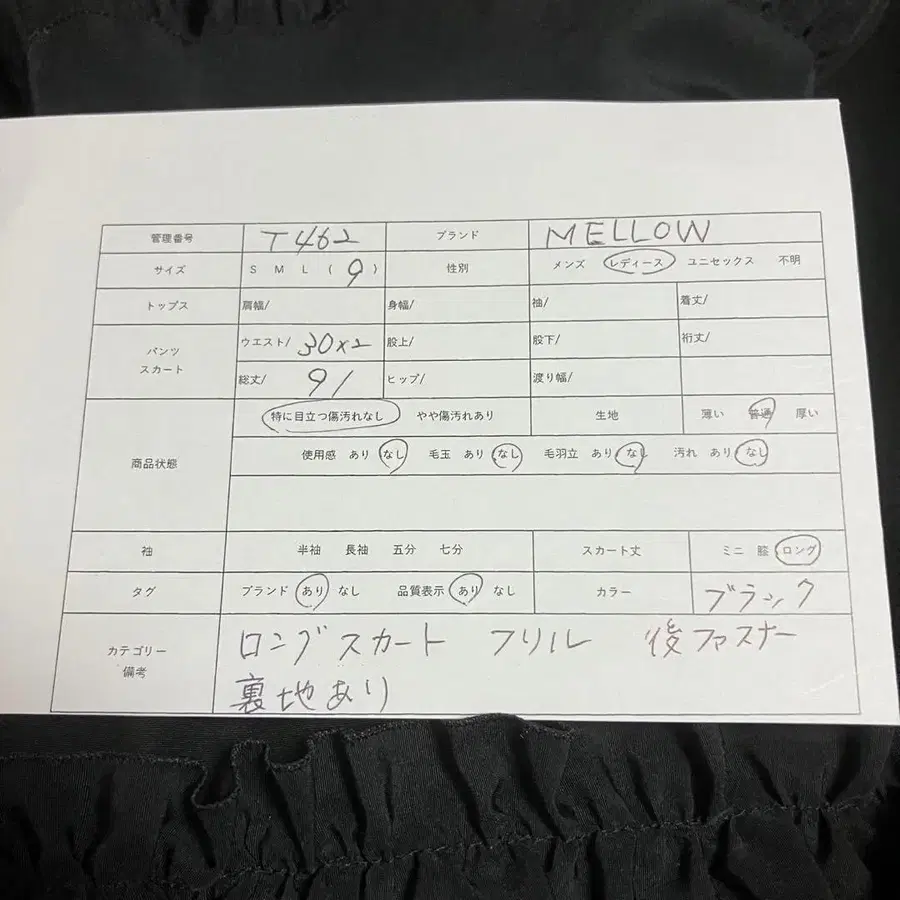 管理番号 T462 ブランド MELLOW
サイズ S M L ( 9 ) 性別 メンズ レディース ユニセックス 不明
トップス 肩幅/ 身幅/ 袖/ 着丈/
パンツ ウエスト/ 30×2 股上/ 股下/ 裄丈/
スカート 総丈/ 91 ヒップ/ 渡り幅/
特に目立つ傷汚れなし やや傷汚れあり 生地 薄い 普通 厚い
商品状態 使用感 あり なし 毛玉 あり なし 毛羽立 あり なし 汚れ あり なし
袖 半袖 長袖 五分 七分 スカート丈 ミニ 膝 ロング
タグ ブランド あり なし 品質表示 あり なし カラー ブラック
カテゴリー ロングスカート フリル 後ファスナー
備考 裏地あり